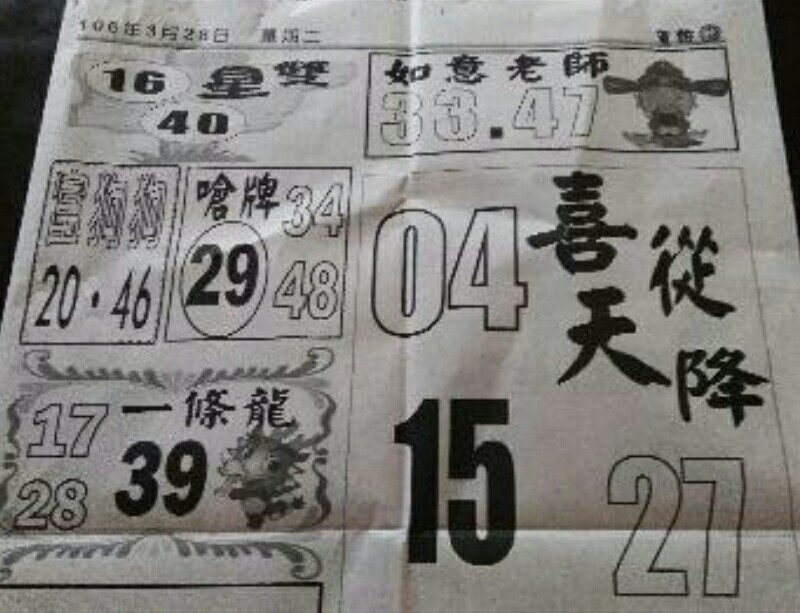 106年3月28日 星期二
雙星
16
40
如意老師
33.47
富狗狗
20.46
嗆牌
34
29
48
喜從天降
04
15
27
一條龍
17
39
28